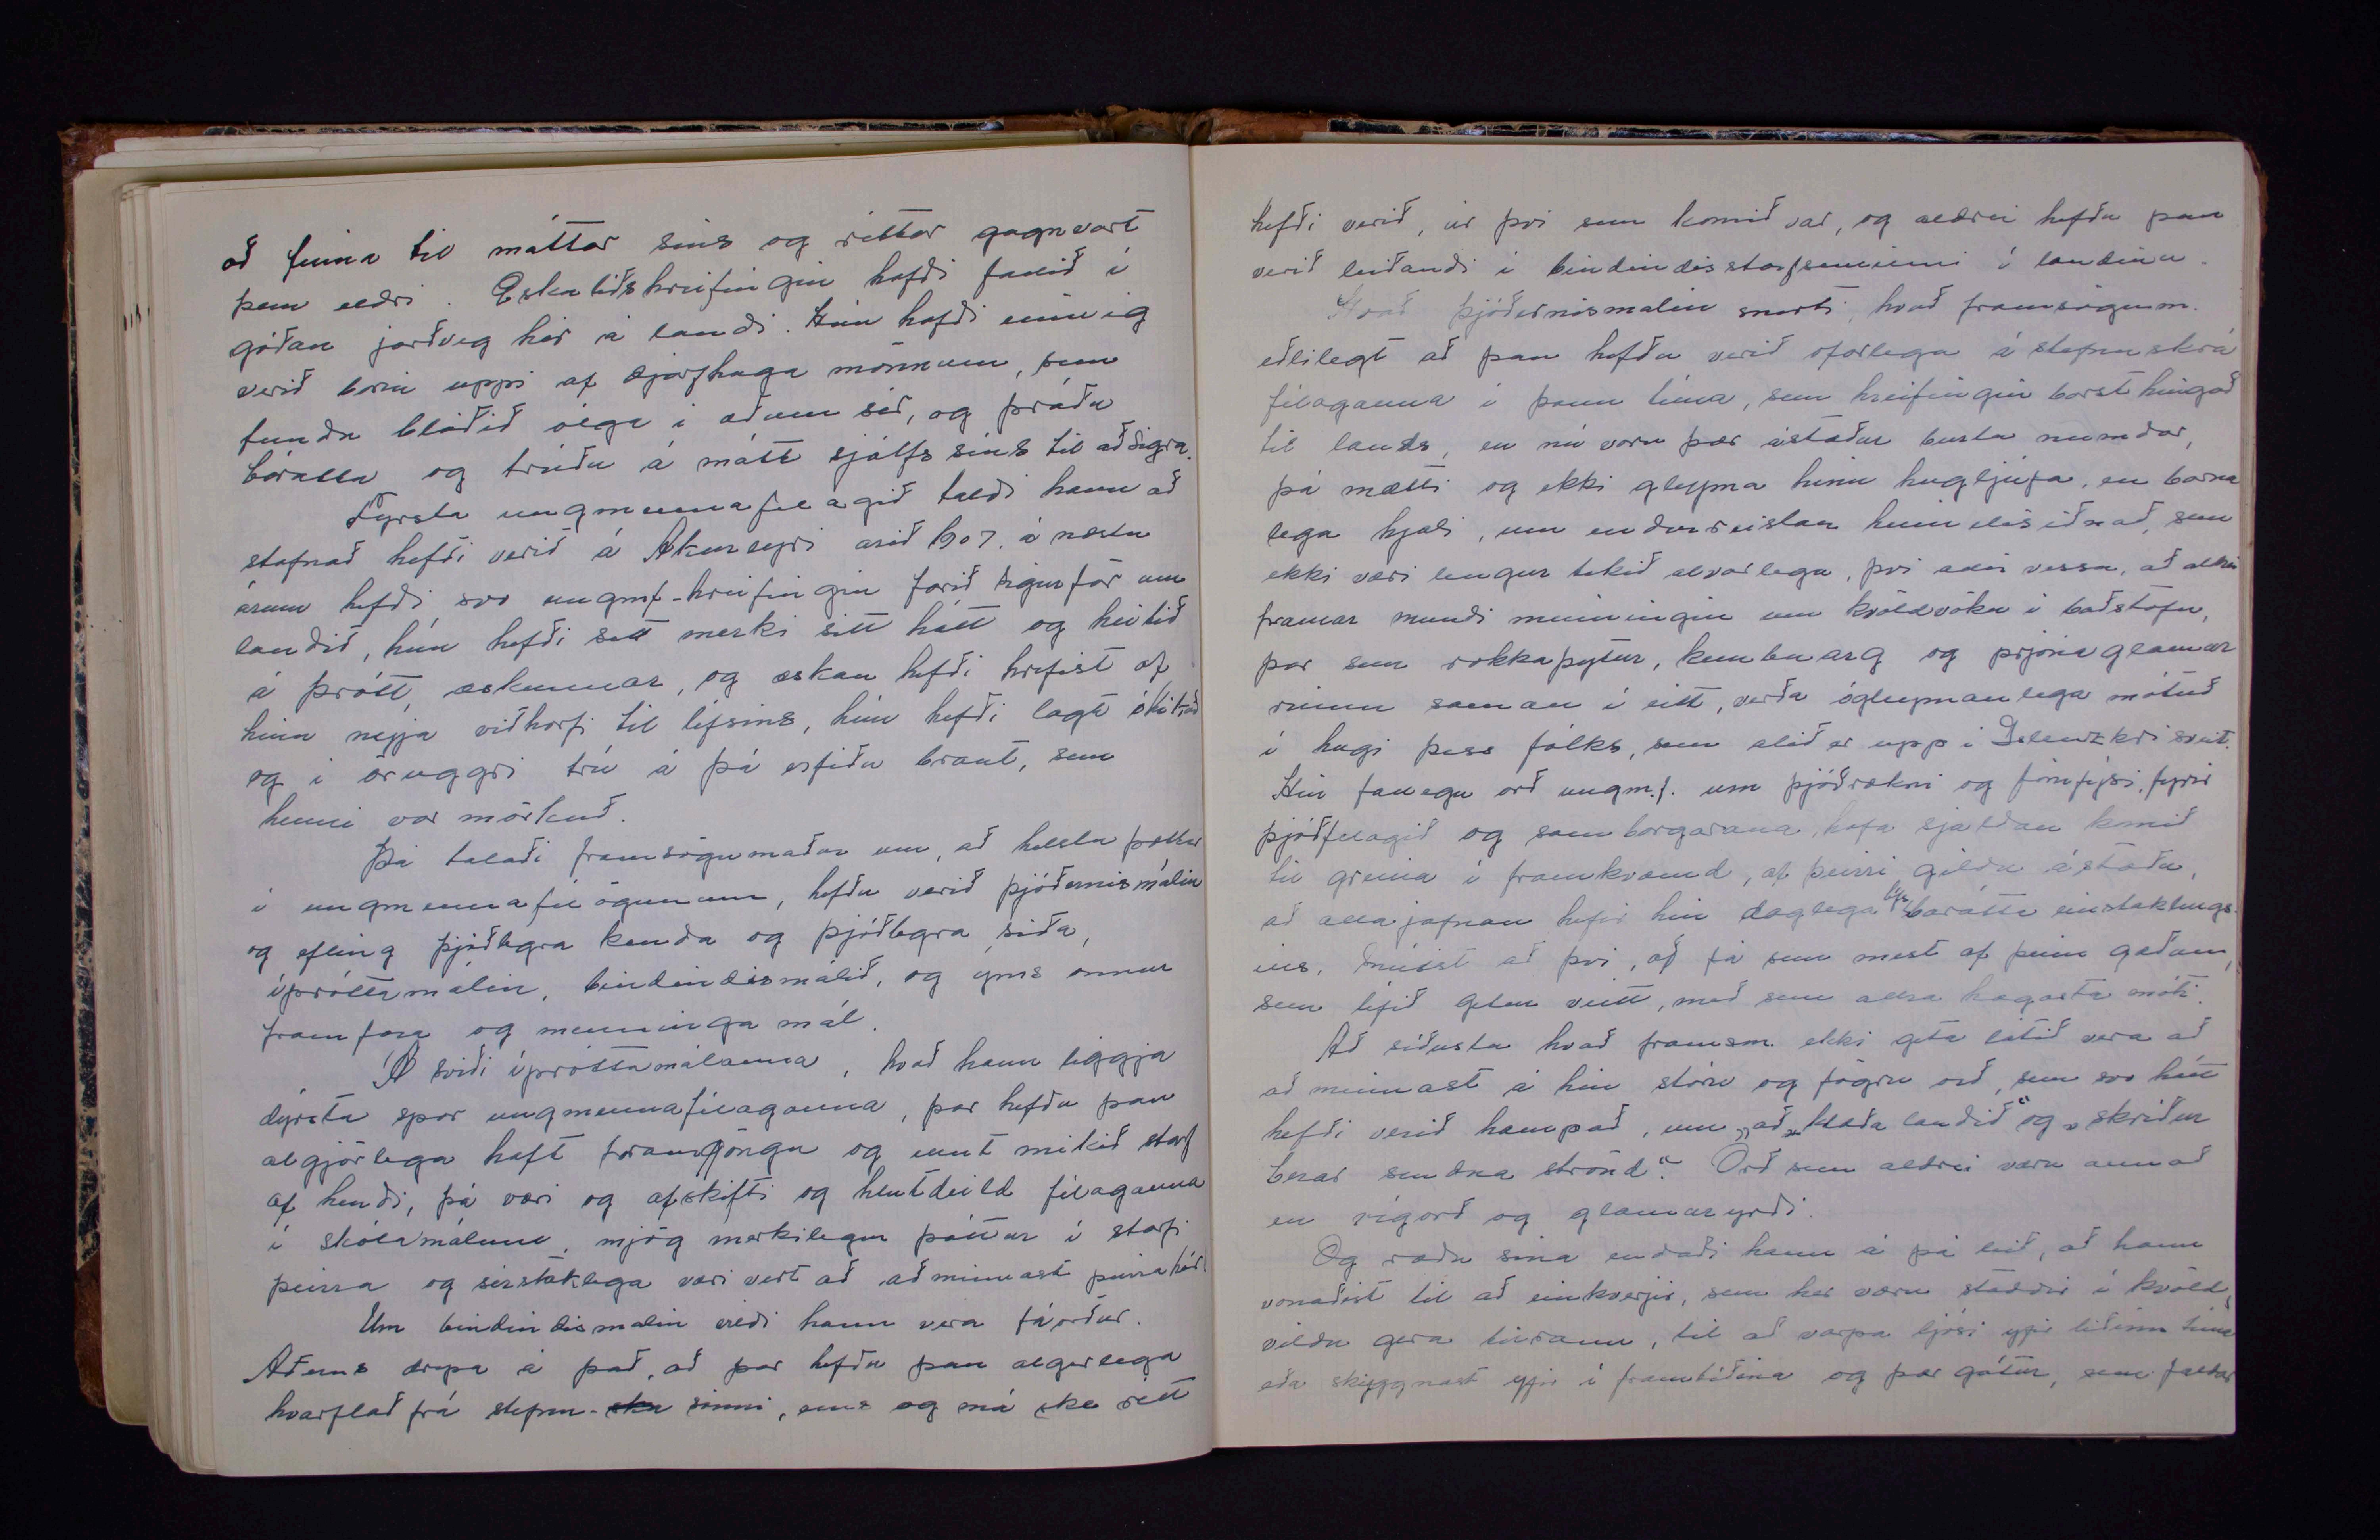 að finna til máttar síns og réttar gagnvart
þeim eldri. Eskulíðshreifingin hafði fallið í
góðan jarðveg hér á landi. Hún hafði einnig
verið borin uppi af djarfhuga mönnum, sem
fundu blóðið ólga í æðum sér, og þráðu
baráttu og trúðu á mátt sjálfs síns til að sigra.
Fyrsta ungmennafélagið taldi hann að
stofnað hefði verið á Akureyri árið 1907. á næstu
árum hefði svo ungmf-hreifingin farið sigurför um
landið, hún hefði sett merki sitt hátt og heitið
á þrótt, æskunnar, og æskan hefði hrifist af
hinu nyja viðhorfi til lífsins, hún hefði lagt ótrauð
og í öruggri trú á þá erfiðu braut, sem
henni var mörkuð.
Þá talaði framsögumaður um, að helstu þættir
í ungmennafélögunum, hefðu verið þjóðernismálin
og efling þjóðlegra kenda og þjóðlegra siða,
íþróttamálin, bindindismálið, og ýms önnur
framfara og menninga mál.
Á sviði íþróttamálanna, kvað hann liggja
dýpsta spor ungmennafélaganna, þar hefðu þau
algjörlega haft framgöngu og unnt mikið starf
af hendi, þá væri og afskifti og hlutdeild félaganna
í skólamálum, mjög merkilegur þáttur í starfi
þeirra og sérstaklega væri vert að að minnast þeirra hér.
Um bindindismálin kvaðst hann vera fáorður.
Aðeins drepa á það, að þar hefðu þau algerlega
hvarflað frá stefnu- sinni, eins og má ske rétt
hefði verið, úr því sem komið var, og aldrei hefðu þau
verið leiðandi í bindindisstarfseminni í landinu.
Hvað þjóðernismálin snerti, kvað framsögum.
eðlilegt að þau hefðu verið ofarlega á stefnuskrá
félaganna í þann tíma, sem hreifingin barst hingað
til lands, en nú voru þær ástæður burtu numdar,
þá mætti og ekki gleyma hinu hugljúfa, en barna
lega hjali, um endurreistan heimilisiðnað, sem
ekki væri lengur tekið alvarlega, því allir vissu, að aldrei
framar mundi minningin um kvöldvöku í baðstofu,
þar sem rokkaþytur, kembuarg og prjónaglamur
runnu saman í eitt, verða ógleymanlega mótuð
í hugi þess fólks, sem alið er upp í Íslenzkri sveit.
Hin fallegu orð ungm.f. um þjóðrækni og fórnfýsi, fyrir
þjóðfélagið og samborgarana, hafa sjaldan komið
til greina í framkvæmd, af þeirri gildu ástæðu,
að alla jafnan hefir hin daglega lífsbarátta einstaklings-
ins, miðast að því, að fá sem mest af þeim gæðum,
sem lífið getur veitt, með sem allra hægasta móti.
Að síðustu kvað framsm. ekki geta látið vera að
að minnast á hin stóru og fögru orð, sem svo hátt
hefði verið hampað, um „að „klæða landið“ og „skriður
berar sendna strönd“. Orð sem aldrei væru annað
en vígorð og glamuryrði.
Og ræðu sína endaði hann á þá leið, að hann
vonaðist til að einhverjir, sem hér væru staddir í kvöld,
vildu gera tilraun, til að varpa ljósi yfir liðinn tíma
eða skyggnast yfir í framtíðina og þær gátur, sem faldar